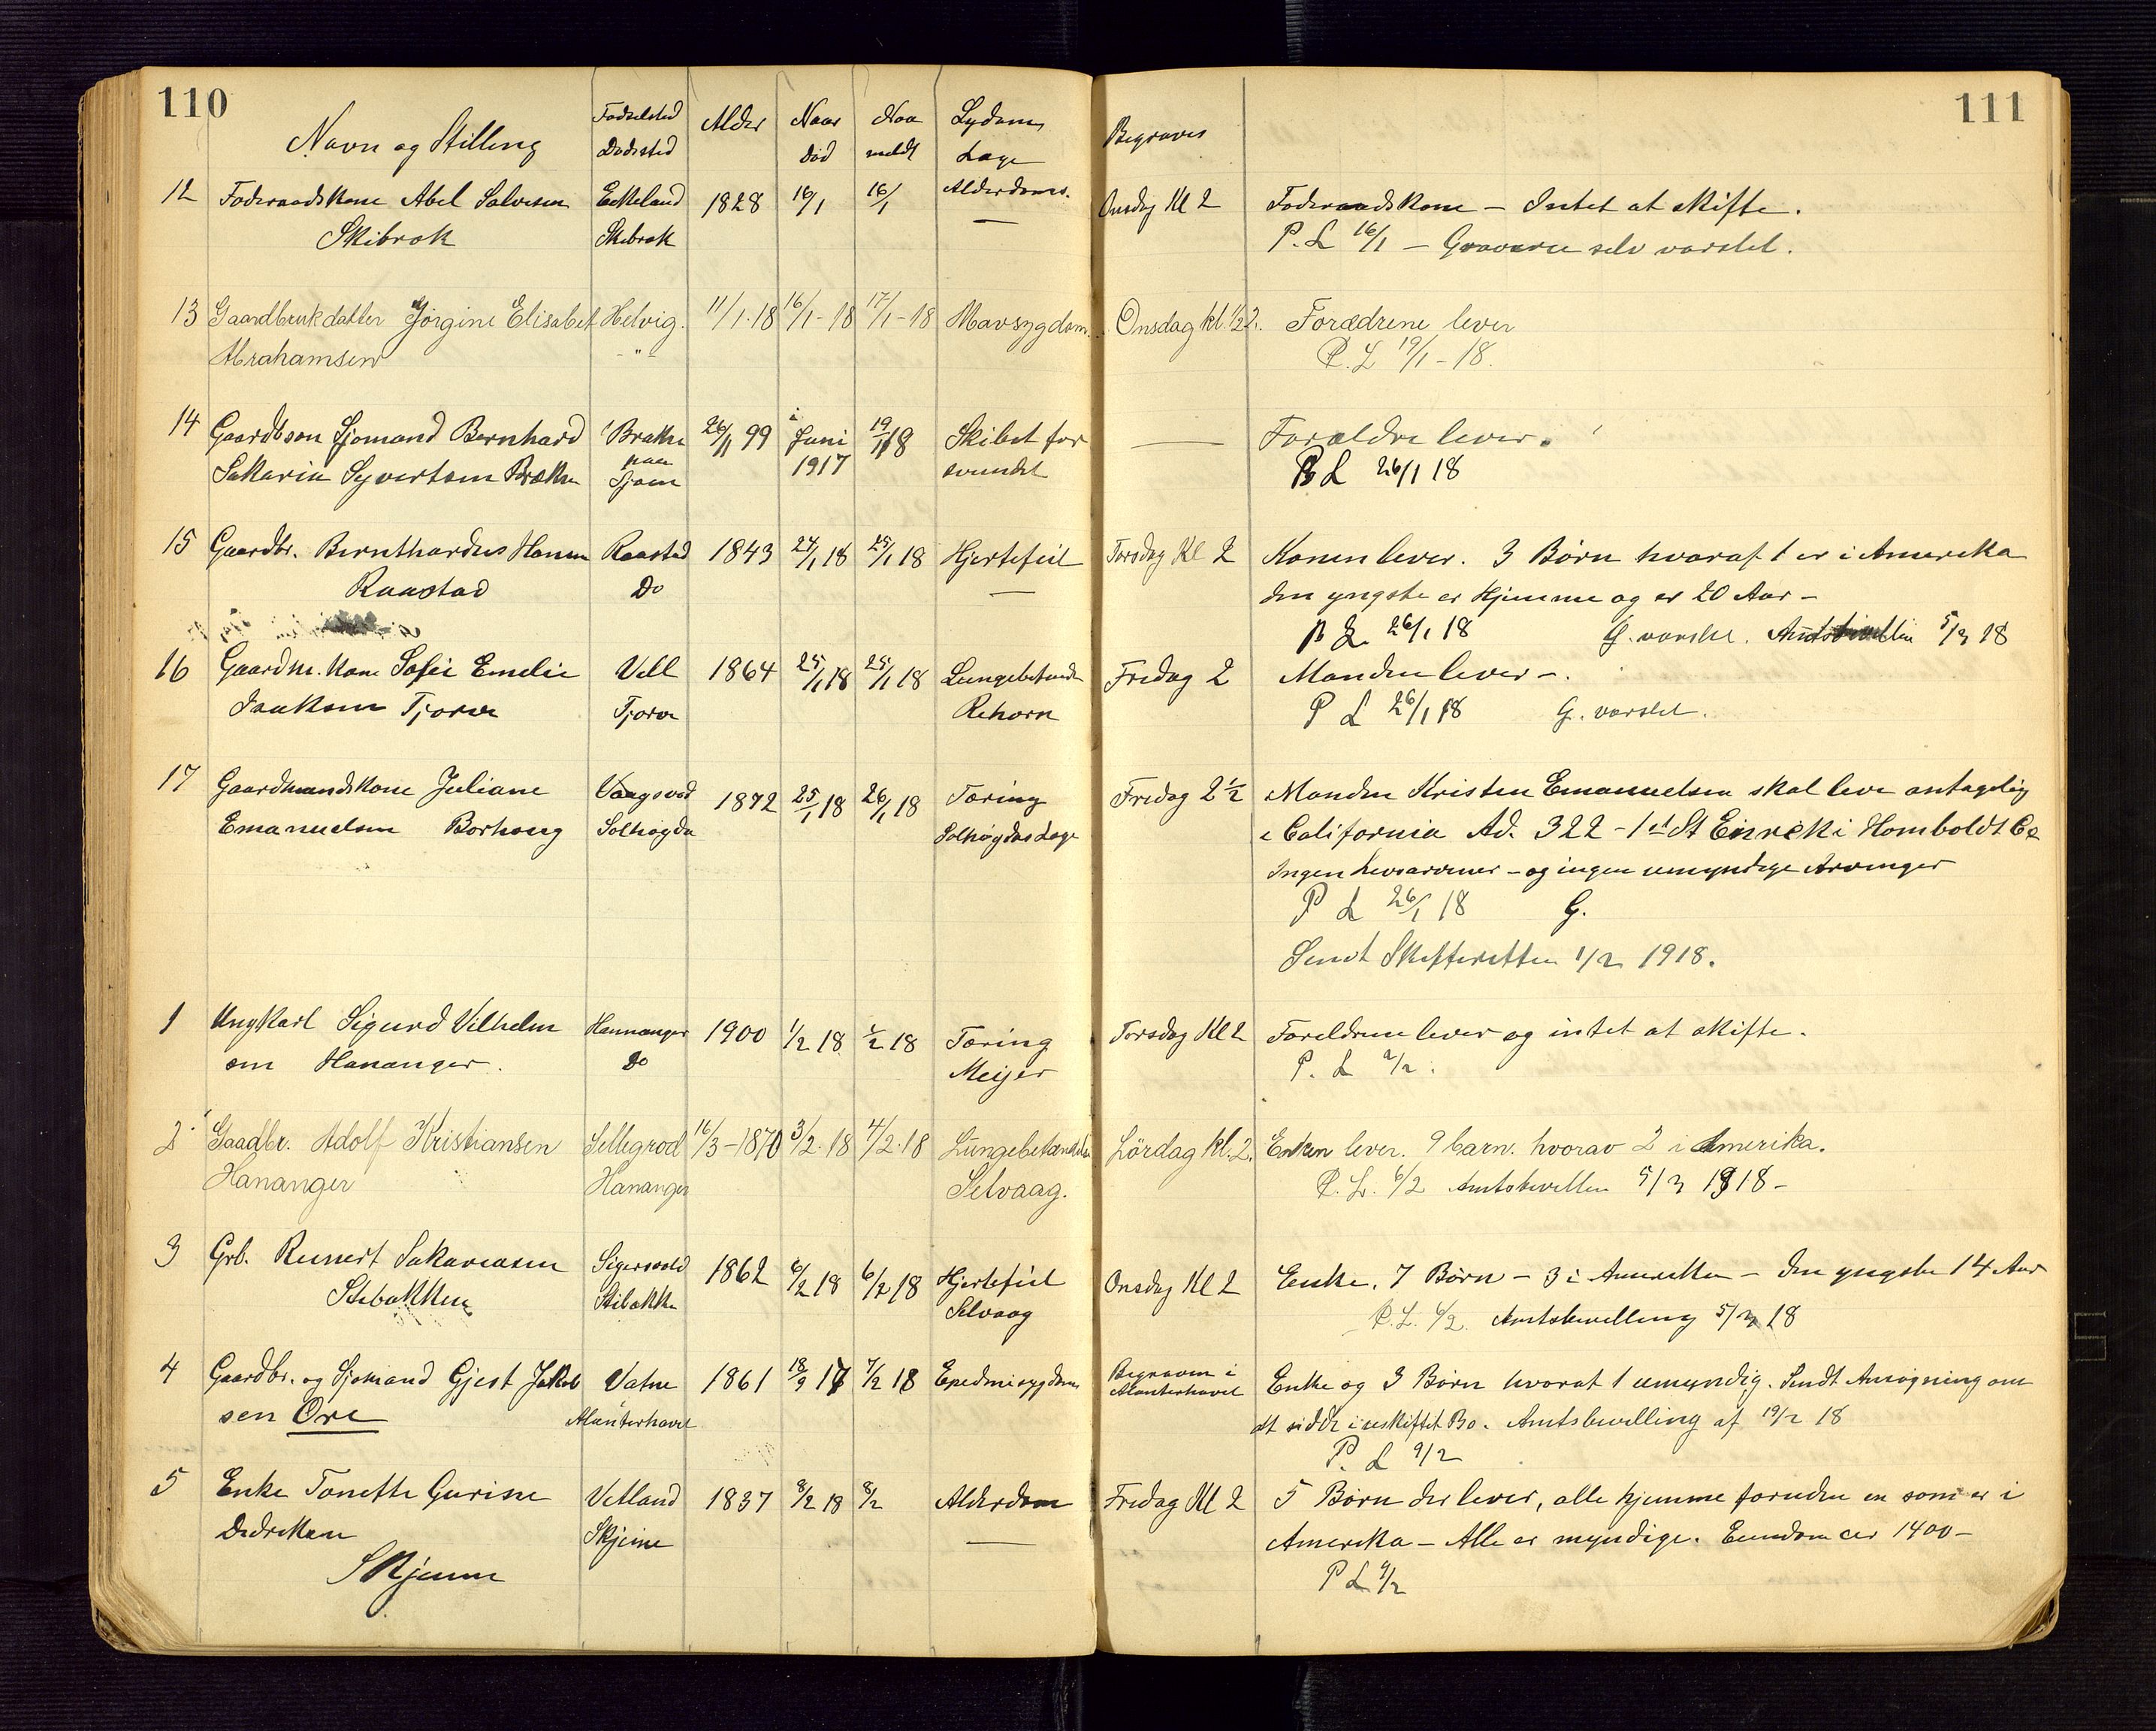 110
111
Navn og Stilling Fødselsted Dødssted Alder Naar død Naa meldt Sygdom Læge Begraves
12 Føderaadskone Abel Salvesen Eikeland 1828 16/1 16/1 Alderdoms. Onsdag Kl 2 Føderaadskone – Intet at skifte.
Skibrok Skibrok — P. L 16/1 – Graverne selv varslet.
13 Gaardbrukdatter Jørgine Elisabet Helvig. 11/1.18 16/1-18 17/1-18 Mavsygdom. Onsdag kl. 1/2 2. Forædrene lever
Abrahamsen -"- P. L 19/1-18.
14 Gaardbson Sjømand Bernhard Brække 26/11 99 i Juni 19/1 18 Skibet for — Forældre lever.
Sakaria Syvertsen Brække paa Sjøen 1917 svundet P L 26/1 18
15 Gaardbr. Bernthardus Hansen Raastad 1843 24/1 18 25/1 18 Hjertefeil Torsdag Kl 2 Konen lever. 3 Børn hvoraf 1 er i Amerika
Raastad Do — den yngste er hjemme og er 20 Aar –
P L. 26/1 18 G. varslet. 5/3 18
16 Gaardm. Kone Sofie Emelie Vell 1864 25/1 18 25/1 18 Lungebetænd Fredag 2 Manden lever –.
Isaksen Tjørve Tjørve Rehorn P L 26/1 18 G. varslet.
17 Gaardmandskone Juliane Vaagsvod 1872 25/1 18 26/1 18 Tæring Fredag 2 1/2 Manden Kristen Emanuelsen skal leve antagelig
Emanuelsen Borhoug Solhøgda Solhøgdas Læge i California Ad. 322 – 1st St Eiireki Homboldt Co
Ingen Livsarvinger – og ingen umyndige Arvinger
P L 26/1 18 G.
Sendt Skifteretten 1/2 1918.
1 Ungkarl Sigurd Vilhelm Hannanger 1900 1/2 18 2/2 18 Tæring Torsdag Kl 2 Foreldrene lever og intet at skifte.
sen Hananger. Do Meijer P. L 2/2.
2 Gaadbr. Adolf Kristiansen Sellegrod 16/3-1870 3/2.18 4/2.18 Lungebetændelse Lördag kl. 2. Enken lever. 9 barn. hvorav 2 i Amerika.
Hananger Hananger Selvaag. P. L. 6/2 Amtsbevillin 5/3 1918 –
3 Grb. Reinert Sakariasen Sigersvold 1862 6/2 18 6/2 18 Hjertefeil Onsdag Kl 2 Enke. 7 Børn – 3 i Amerika – Den yngste 14 Aar
Stibakken Stibakke Selvaag P. L. 6/2. Amtsbevilling 5/3 18
4 Gaardbr. og Sjømand Gjest Jakob Vatne 1861 18/9 17 7/2 18 Epedmisygdom Begraven i Atlanterhavet Enke og 3 Børn hvoraf 1 umyndig. Sendt Ansøgning om
sen Ore Atlanterhavet at sidde i uskiftet Bo. Amtsbevilling af 19/2 18
P. L 9/2
5 Enke Tonette Gurine Vetland 1837 8/2 18 8/2 Alderdom Fredag Kl 2 5 Børn der lever, alle hjemme foruden en som er i
Dedreksen Skjeime — Amerika – Alle er myndige. Eiendom ca 1400 –
P L 9/2